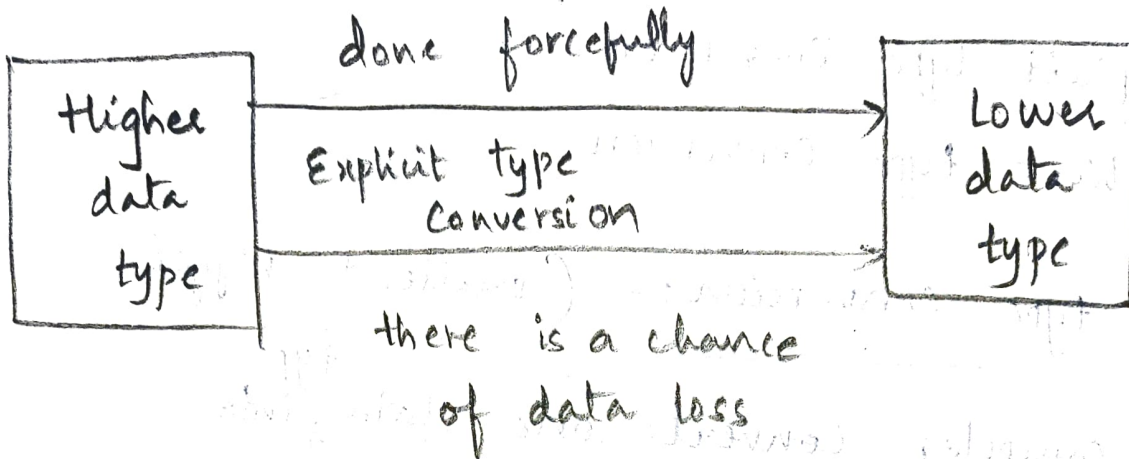 done forcefully
Higher
data
type
Explicit type
Conversion
Lower
data
type
there is a chance
of data loss